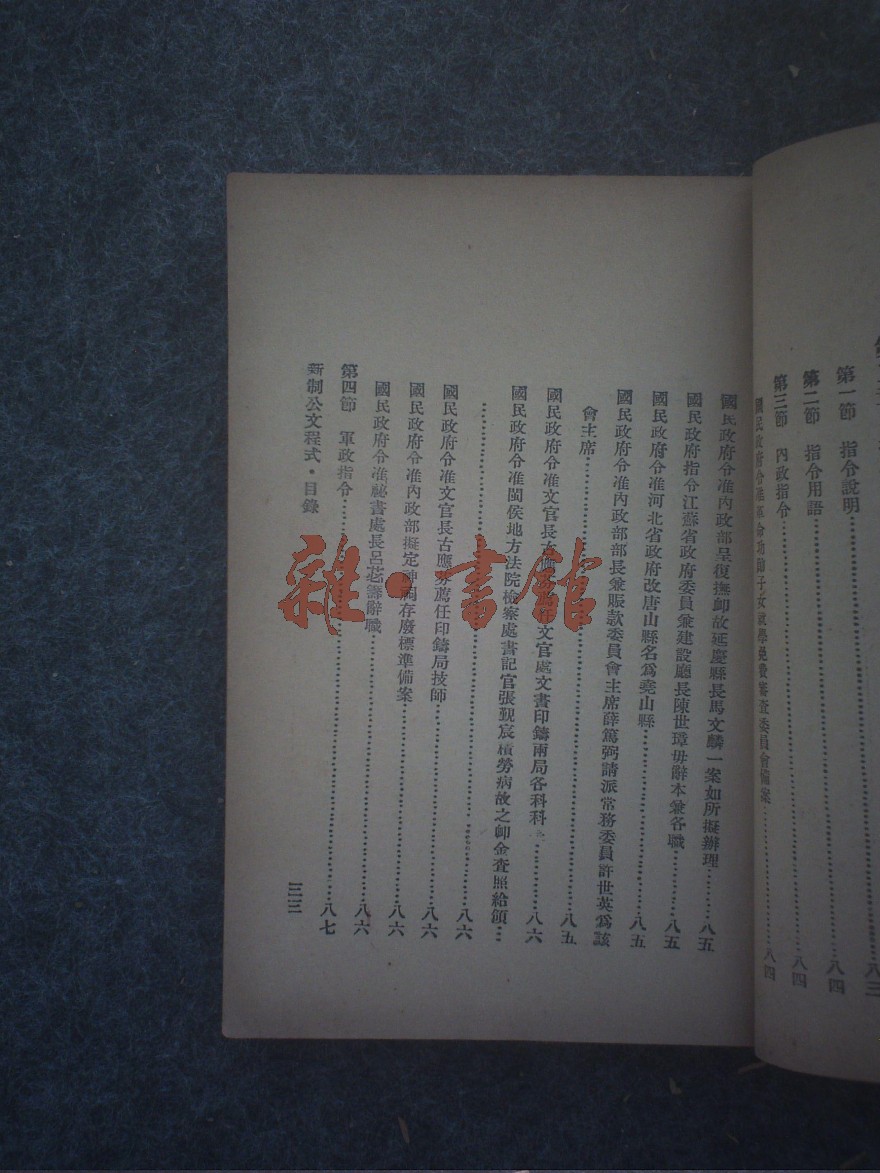 第一節　指令說明……八三
第二節　指令用語……八四
第三節　內政指令……八四
國民政府令准革命功勛子女就學免費審查委員會備案……八四
國民政府令准內政部呈復撫卹故延慶縣長馬文麟一案如所擬辦理……八五
國民政府指令江蘇省政府委員兼建設廳長陳世璋毋辭本兼各職……八五
國民政府令准河北省政府改唐山縣名爲堯山縣……八五
國民政府令准內政部部長兼賑款委員會主席薛篤弼請派常務委員許世英爲該
會主席……八五
國民政府令准文官長古 文官處文書印鑄兩局各科科……八六
國民政府令准閩侯地方法院檢察處書記官張覲宸積勞病故之卹金查照給領…
……八六
國民政府令准文官長古應芬薦任印鑄局技師……八六
國民政府令准內政部擬定神祠存廢標準備案……八六
國民政府令准祕書處長呂苾籌辭職……八六
第四節　軍政指令……八七
新制公文程式・目錄
三三
雜・書館